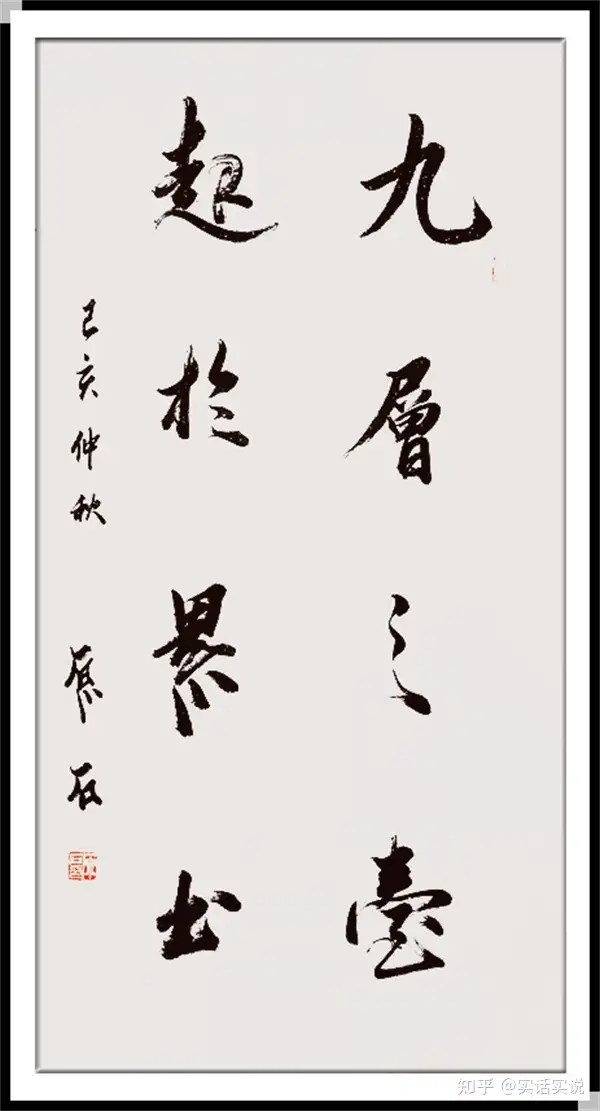 九層之臺
起於累土
己亥仲秋
石
知乎 @实话实说